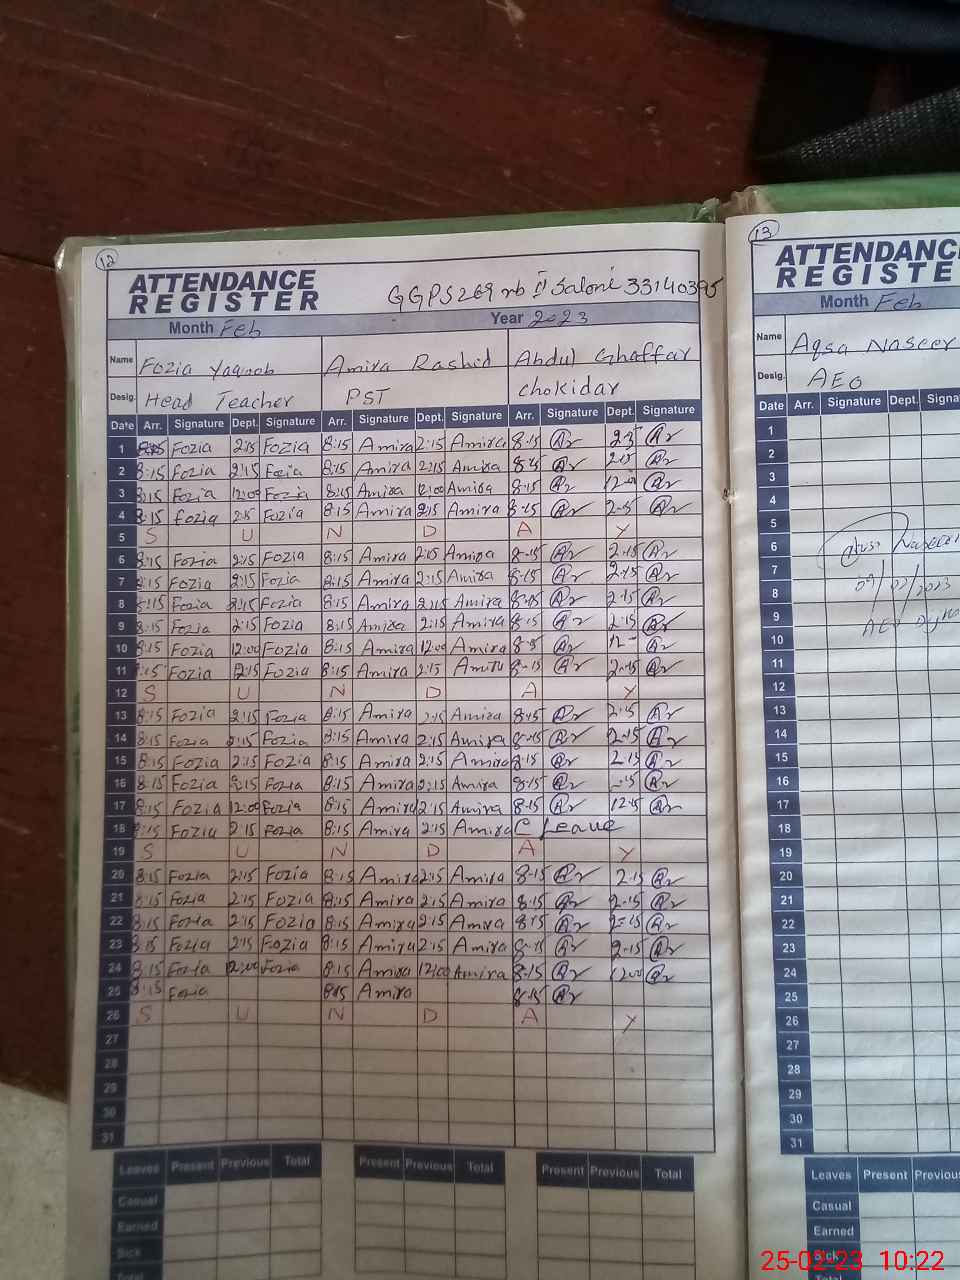 12
ATTENDANCE
REGISTER
GGPS 269 rb II Saloni 33140395
Month Feb Year 2023
Name Fozia Yaqoob Amira Rashid Abdul Ghaffar
Desig. Head Teacher PST chokidar
Date Arr. Signature Dept. Signature Arr. Signature Dept. Signature Arr. Signature Dept. Signature
1 8:15 Fozia 2:15 Fozia 8:15 Amira 2:15 Amira 8-15
2 8:15 Fozia 2:15 Fozia 8:15 Amira 2:15 Amira 8-15 2-15
3 8:15 Fozia 12:00 Fozia 8:15 Amira 12:00 Amira 8-15
4 8:15 Fozia 2:15 Fozia 8:15 Amira 2:15 Amira 8-15 2-15
5 S U N D A Y
6 8:15 Fozia 2:15 Fozia 8:15 Amira 2:15 Amira 8-15 2-15
7 8:15 Fozia 2:15 Fozia 8:15 Amira 2:15 Amira 8-15 2-15
8 8:15 Fozia 2:15 Fozia 8:15 Amira 2:15 Amira 8-15 2-15
9 8:15 Fozia 2:15 Fozia 8:15 Amira 2:15 Amira 8-15 2-15
10 8:15 Fozia 12:00 Fozia 8:15 Amira 12:00 Amira 8-15
11 8:15 Fozia 2:15 Fozia 8:15 Amira 2:15 Amira 8-15 2-15
12 S U N D A Y
13 8:15 Fozia 2:15 Fozia 8:15 Amira 2:15 Amira 8-15 2-15
14 8:15 Fozia 2:15 Fozia 8:15 Amira 2:15 Amira 8-15 2-15
15 8:15 Fozia 2:15 Fozia 8:15 Amira 2:15 Amira 8-15 2-15
16 8:15 Fozia 2:15 Fozia 8:15 Amira 2:15 Amira 8-15
17 8:15 Fozia 12:00 Fozia 8:15 Amira 2:15 Amira 8-15
18 8:15 Fozia 2:15 Fozia 8:15 Amira 2:15 Amira C Leave
19 S U N D A Y
20 8:15 Fozia 2:15 Fozia 8:15 Amira 2:15 Amira 8-15 2-15
21 8:15 Fozia 2:15 Fozia 8:15 Amira 2:15 Amira 8-15 2-15
22 8:15 Fozia 2:15 Fozia 8:15 Amira 2:15 Amira 8-15 2-15
23 8:15 Fozia 2:15 Fozia 8:15 Amira 2:15 Amira 8-15 2-15
24 8:15 Fozia 12:00 Fozia 8:15 Amira 12:00 Amira 8-15 1200
25 8:15 Fozia 8:15 Amira 8-15
26 S U N D A Y
27
28
29
30
31
Leaves Present Previous Total Present Previous Total Present Previous Total
Casual
Earned
Sick
Total
13
ATTENDANC
REGISTE
Month Feb
Name Aqsa Naseer
Desig. AEO
Date Arr. Signature Dept. Signa
1
2
3
4
5
6 Naseer
7
8 09/02/2023
9 AEO
10
11
12
13
14
15
16
17
18
19
20
21
22
23
24
25
26
27
28
29
30
31
Leaves Present Previous
Casual
Earned
Sick
Total
25-02-23 10:22